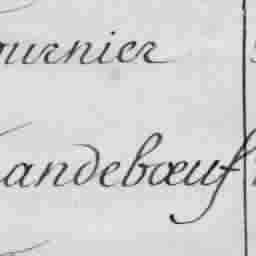 ournier
andebœuf